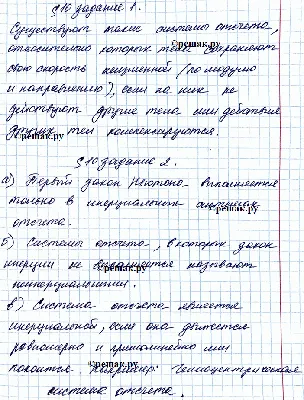 §10 задание 1.
Существуют такие системы отсчета,
относительно которых тела сохраняют
свою скорость неизменной (по модулю
и направлению), если на них не
действуют другие тела или действие
других тел компенсируются.
§10 задание 2.
а) Первый закон Ньютона выполняется
только в инерциальных системах
отсчета.
б) Системы отсчета, в которых закон
инерции не выполняется называют
неинерциальными.
в) Система отсчета является
инерциальной, если она движется
равномерно и прямолинейно или
покоится. Например: Гелиоцентрическая
система отсчета.
©решак.ру
©решак.ру
©решак.ру
©решак.ру
©решак.ру